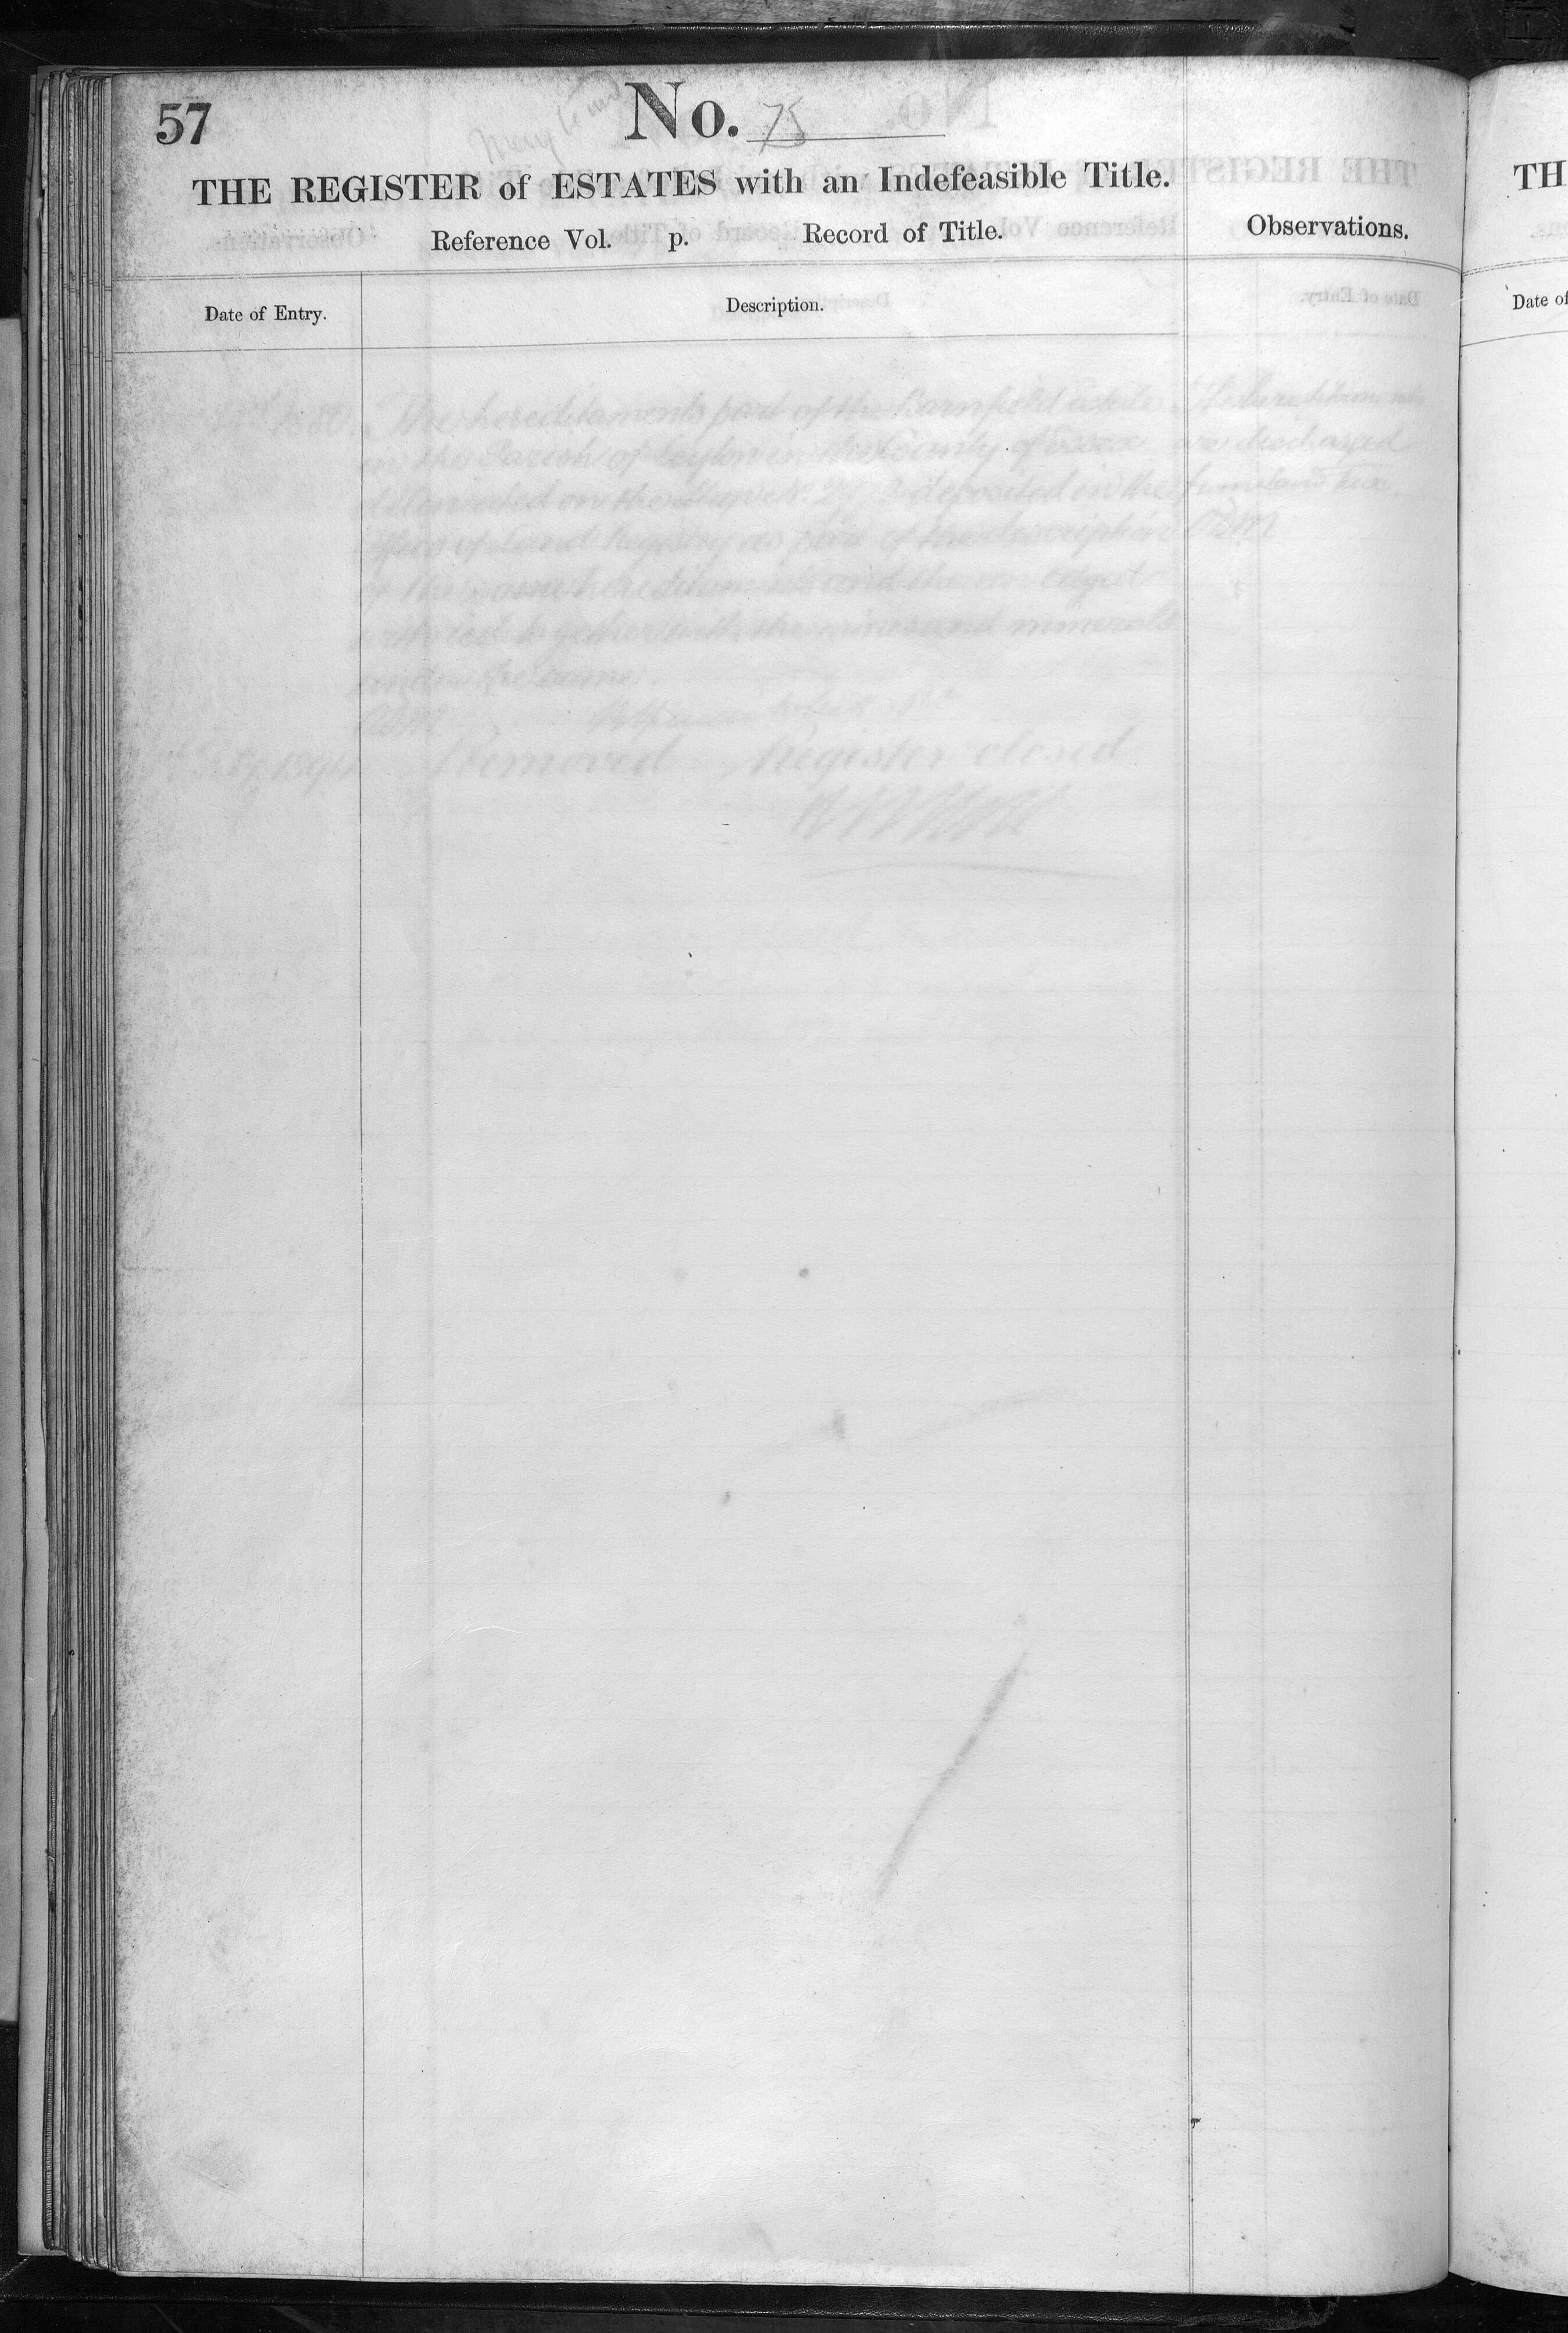 57
No. 75
THE REGISTER of ESTATES with an Indefeasible Title.
Reference Vol. p. Record of Title.
Observations.
Date of Entry.
Description.
1880. The hereditaments part of the Barnfield estate The hereditaments
in the Parish of Leyton in the County of Essex are discharged
delineated on the Map No. deposited in the from Land Tax.
Office of Land Registry as part of the description
of the same hereditaments and thereon edged
with red together with the mines and minerals
under the same.
1894 Removed Register closed
TH
Date of